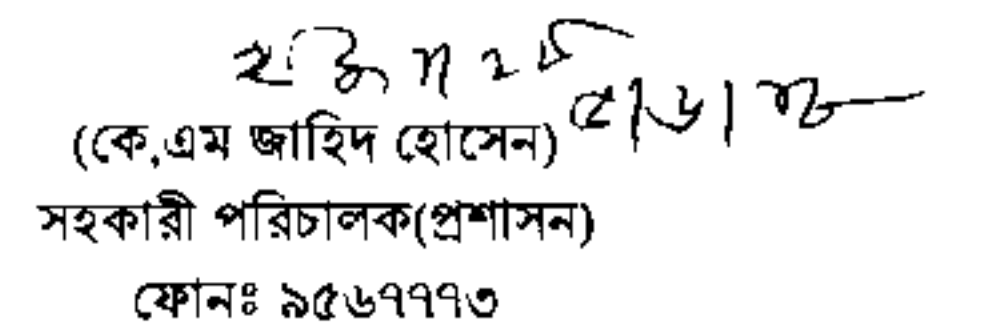 ৫/৬/
(কে,এম জাহিদ হোসেন)
সহকারী পরিচালক(প্রশাসন)
ফোনঃ ৯৫৬৭৭৭৩